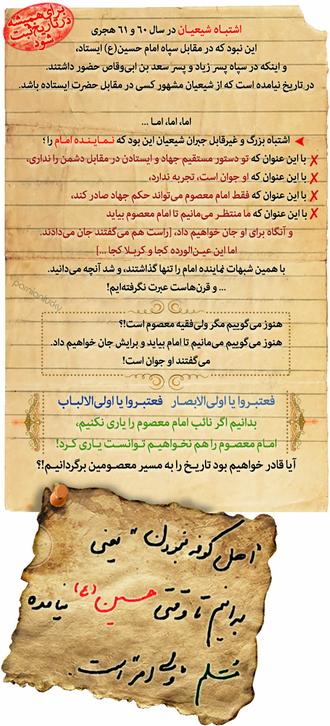 برای همیشه
در تاریخ ثبت
شود
اشتباه شیعیان در سال ۶۰ و ۶۱ هجری
این نبود که در مقابل سپاه امام حسین(ع) ایستاد،
و اینکه در سپاه پسر زیاد و پسر سعد بن ابی‌وقاص حضور داشتند.
در تاریخ نیامده است که از شیعیان مشهور کسی در مقابل حضرت ایستاده باشد.
اما، اما، اما ...
اشتباه بزرگ و غیرقابل جبران شیعیان این بود که نماینده امام را؛
با این عنوان که تو دستور مستقیم جهاد و ایستادن در مقابل دشمن را نداری،
با این عنوان که او جوان است، تجربه ندارد،
با این عنوان که فقط امام معصوم می‌تواند حکم جهاد صادر کند،
با این عنوان که ما منتظر می‌مانیم تا امام معصوم بیاید
و آنگاه برای او جان خواهیم داد، [راست هم می‌گفتند جان می‌دادند.
اما این عین‌الورده کجا و کربلا کجا ...]
با همین شبهات نماینده امام را تنها گذاشتند، و شد آنچه می‌دانید.
... و قرن‌هاست عبرت نگرفته‌ایم!
هنوز می‌گوییم مگر ولی‌فقیه معصوم است!؟
هنوز می‌گوییم می‌مانیم تا امام بیاید و برایش جان خواهیم داد.
می‌گفتند او جوان است!
فعتبروا یا اولی‌الابصار فعتبروا یا اولی‌الالباب
بدانیم اگر نائب امام معصوم را یاری نکنیم،
امام معصوم را هم نخواهیم توانست یاری کرد!
آیا قادر خواهیم بود تاریخ را به مسیر معصومین برگردانیم؟!
"اهل کوفه نبودن" یعنی
بدانیم تا وقتی حسین(ع) نیامده
مسلم "ولی امر" است.